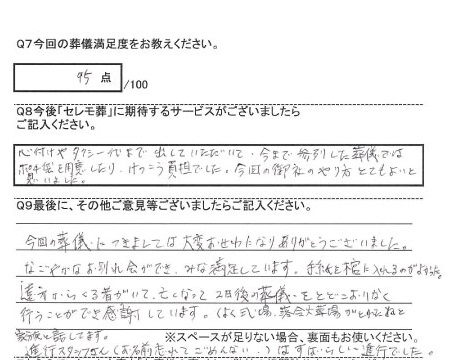 Q7今回の葬儀満足度をお教えください。
95 点 /100
Q8今後「セレモ葬」に期待するサービスがございましたら
ご記入ください。
心付けやタクシー代まで出していただいて、今まで参列した葬儀では
ポチ袋を用意したり、けっこう負担でした。今回の御社のやり方とてもよいと
思いました。
Q9最後に、その他ご意見等ございましたらご記入ください。
今回の葬儀につきましては大変おせわになりありがとうございました。
なごやかなお別れ会ができ、みな満足しています。手紙を棺に入れるのがよかった。
遠方からくる者がいて、亡くなって2日後の葬儀をとどこおりなく
行うことができ感謝しています。
家族と話してます。
※スペースが足りない場合、裏面もお使いください。
進行スタッフさん(お名前忘れてごめんなさい)はすばらしい進行でした